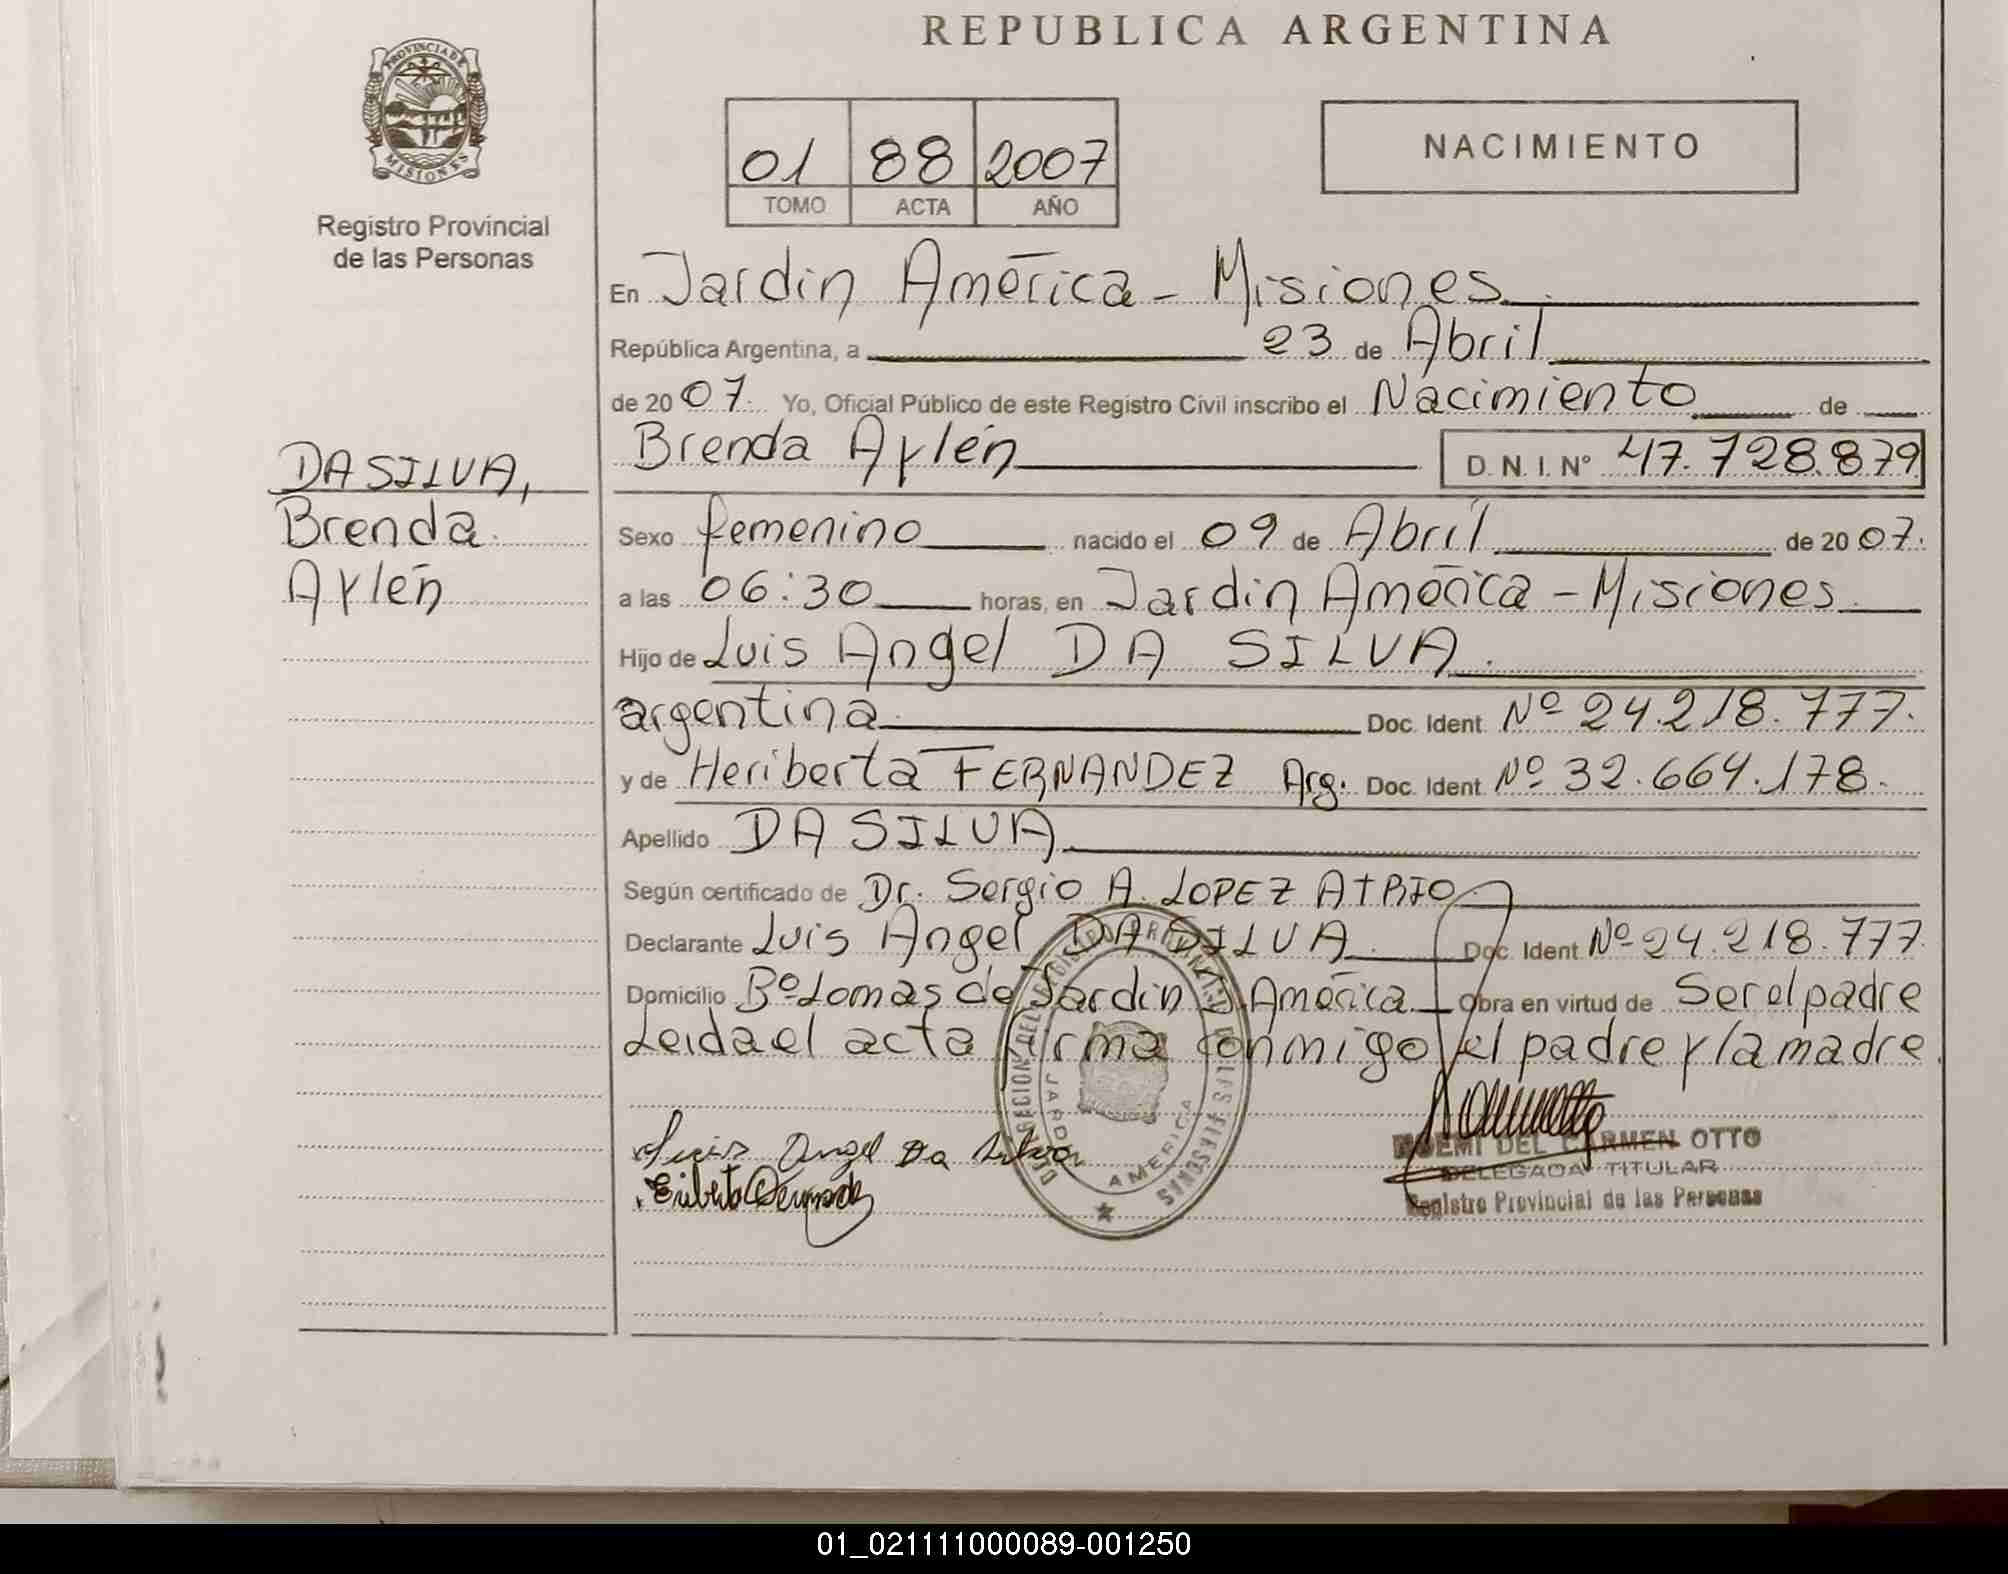 REPUBLICA ARGENTINA
PROVINCIA DE
MISIONES
Registro Provincial
de las Personas
01 88 2007
TOMO ACTA AÑO
NACIMIENTO
En Jardin América - Misiones
República Argentina, a 23 de Abril
de 2007. Yo, Oficial Público de este Registro Civil inscribo el Nacimiento de
Brenda Aylén D.N.I. Nº 47.728.879
DA SILVA,
Brenda
Aylén
Sexo femenino nacido el 09 de Abril de 2007.
a las 06:30 horas, en Jardin América - Misiones
Hijo de Luis Angel DA SILVA.
argentina Doc. Ident. Nº 24.218.777.
y de Heriberta FERNANDEZ Arg. Doc. Ident. Nº 32.664.178.
Apellido DA SILVA
Según certificado de Dr. Sergio A. LOPEZ ATRIO
Declarante Luis Angel DA SILVA Doc. Ident. Nº 24.218.777
Domicilio Bº Lomas de Jardin J. América Obra en virtud de Ser el padre
Leida el acta firma conmigo el padre y la madre.
Luis Angel Da Silva
JARDIN AMERICA
NOEMI DEL CARMEN OTTO
DELEGADA TITULAR
Registro Provincial de las Personas
01_021111000089-001250